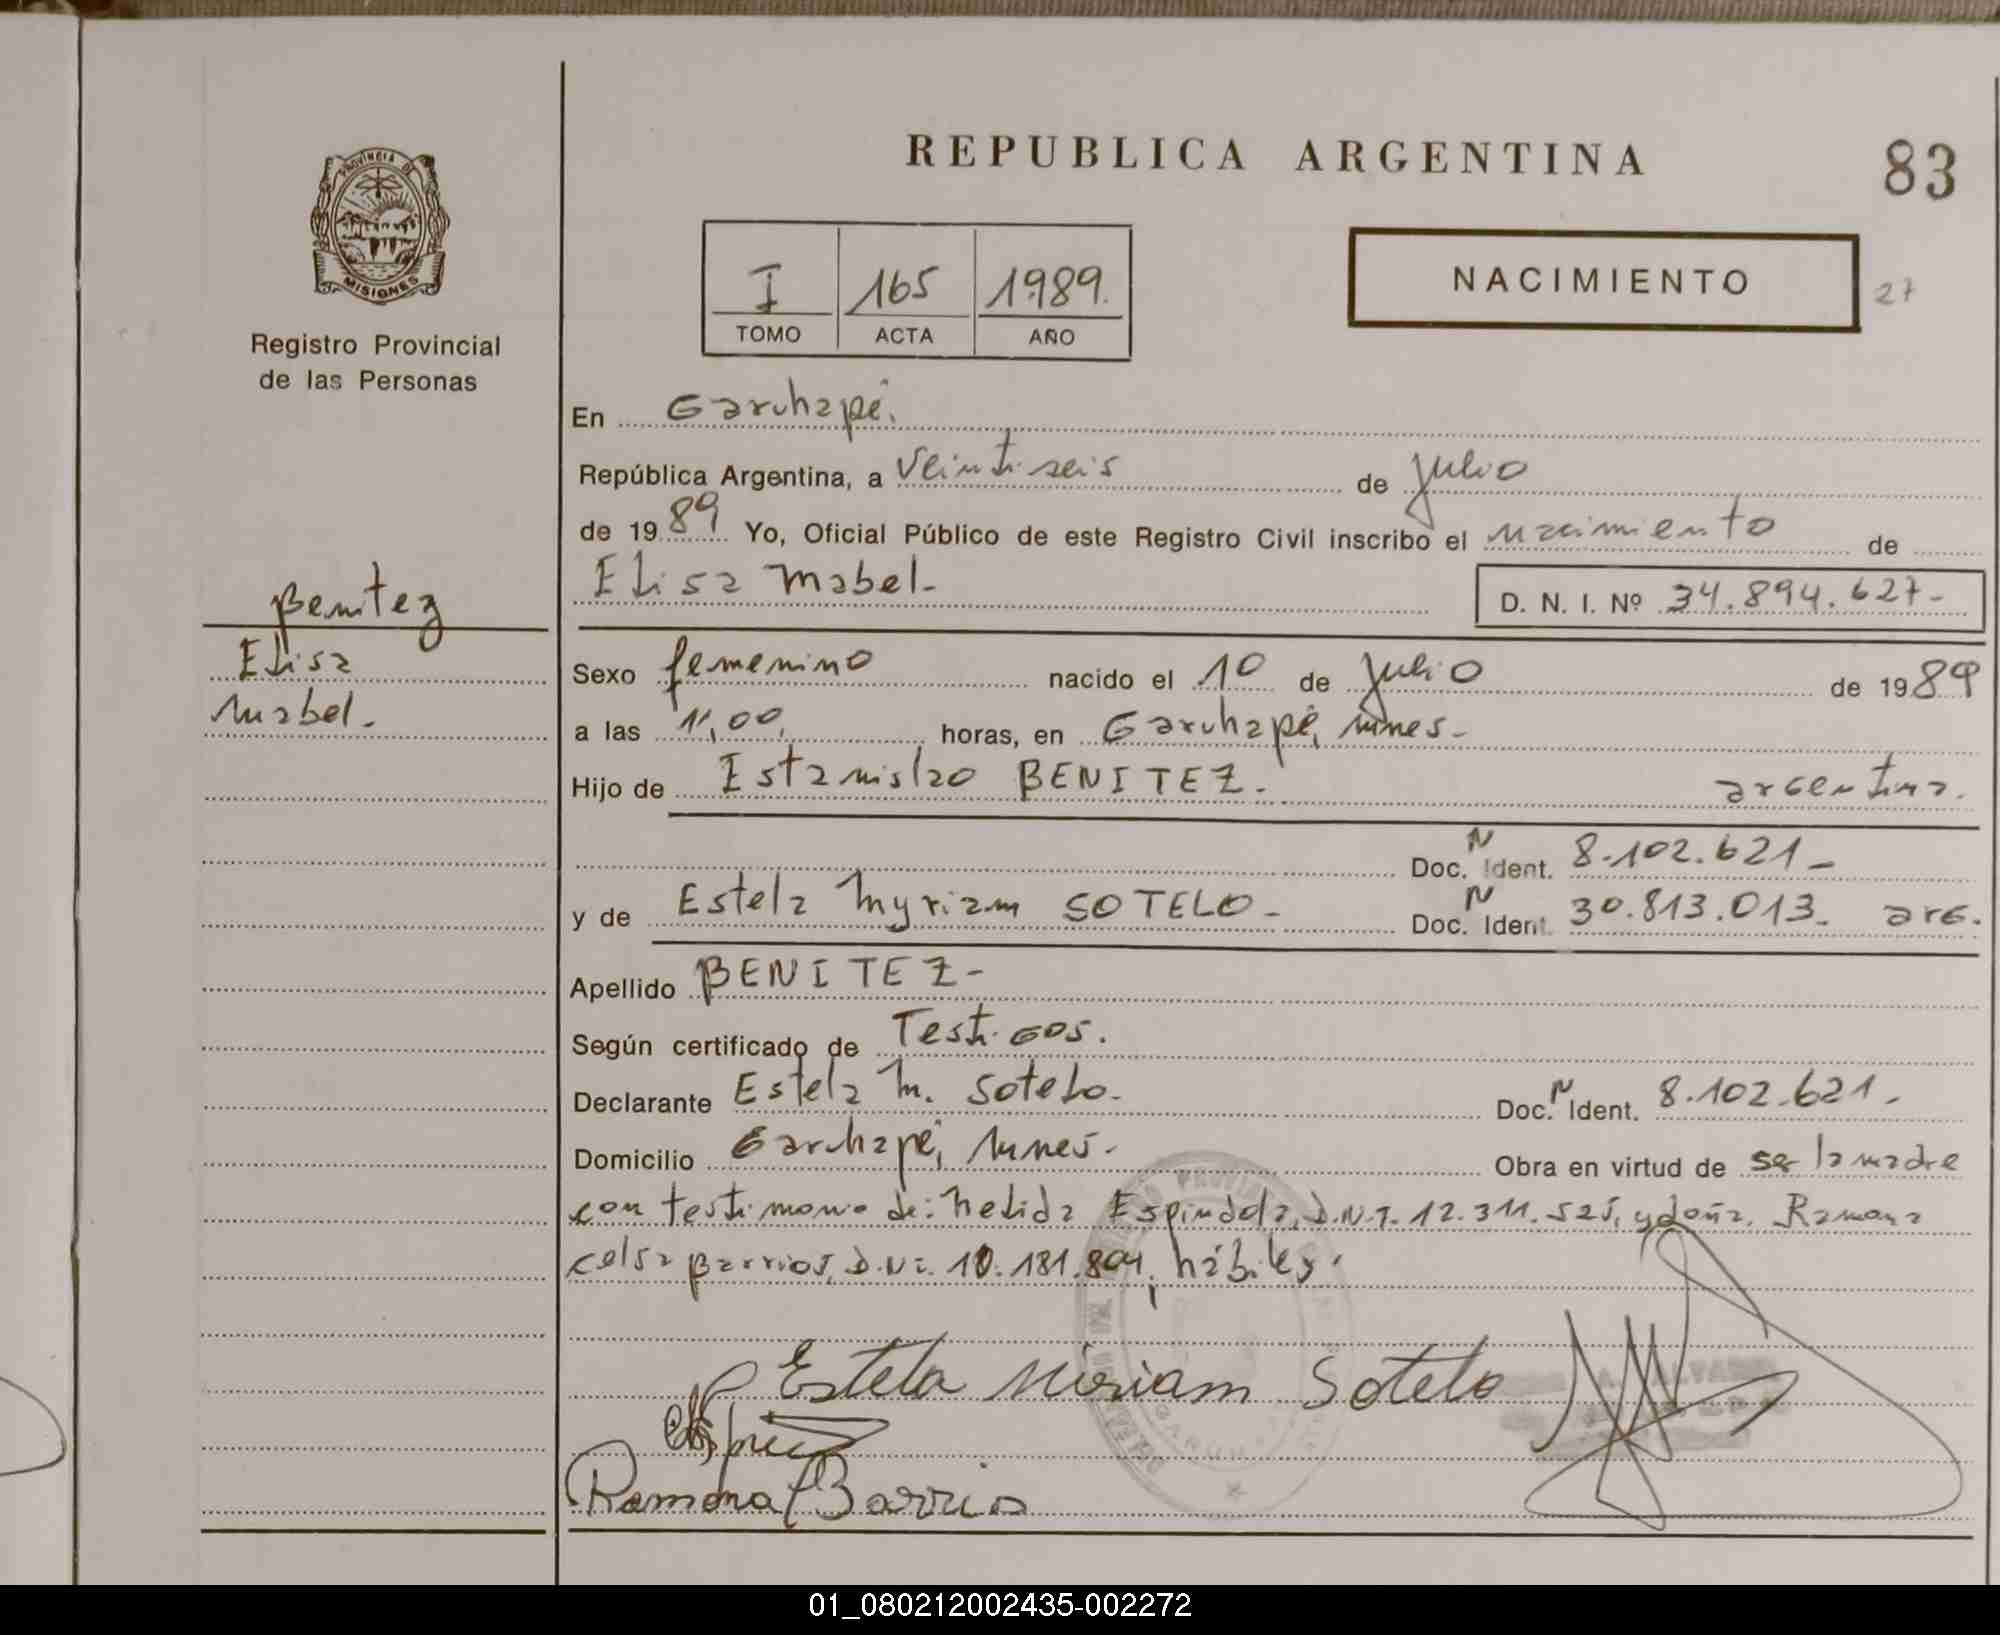 REPUBLICA ARGENTINA
83
PROVINCIA DE
MISIONES
Registro Provincial
de las Personas
I 165 1989.
TOMO ACTA AÑO
NACIMIENTO
27
En Garuhapé.
República Argentina, a Veintiseis de Julio
de 19 89 Yo, Oficial Público de este Registro Civil inscribo el nacimiento de
Elisa Mabel-
D. N. I. Nº 34.894.627-
Benitez
Elisa
Mabel.
Sexo femenino nacido el 10 de Julio de 19 89
a las 11,00, horas, en Garuhapé, Mnes-
Hijo de Estanislao BENITEZ. argentina.
Doc. N Ident. 8.102.621-
y de Estela Myriam SOTELO- Doc. N Ident. 30.813.013. arg.
Apellido BENITEZ-
Según certificado de Testigos.
Declarante Estela M. Sotelo. Doc. N Ident. 8.102.621.
Domicilio Garuhapé, Mnes. Obra en virtud de ser la madre
con testimonio de: Nelida Espindola, D.N.I. 12.311.525, y doña Ramona
Celsa Barrios, D.N.I. 10.181.804, hábiles.
Estela Miriam Sotelo
Ramona Barrios
01_080212002435-002272